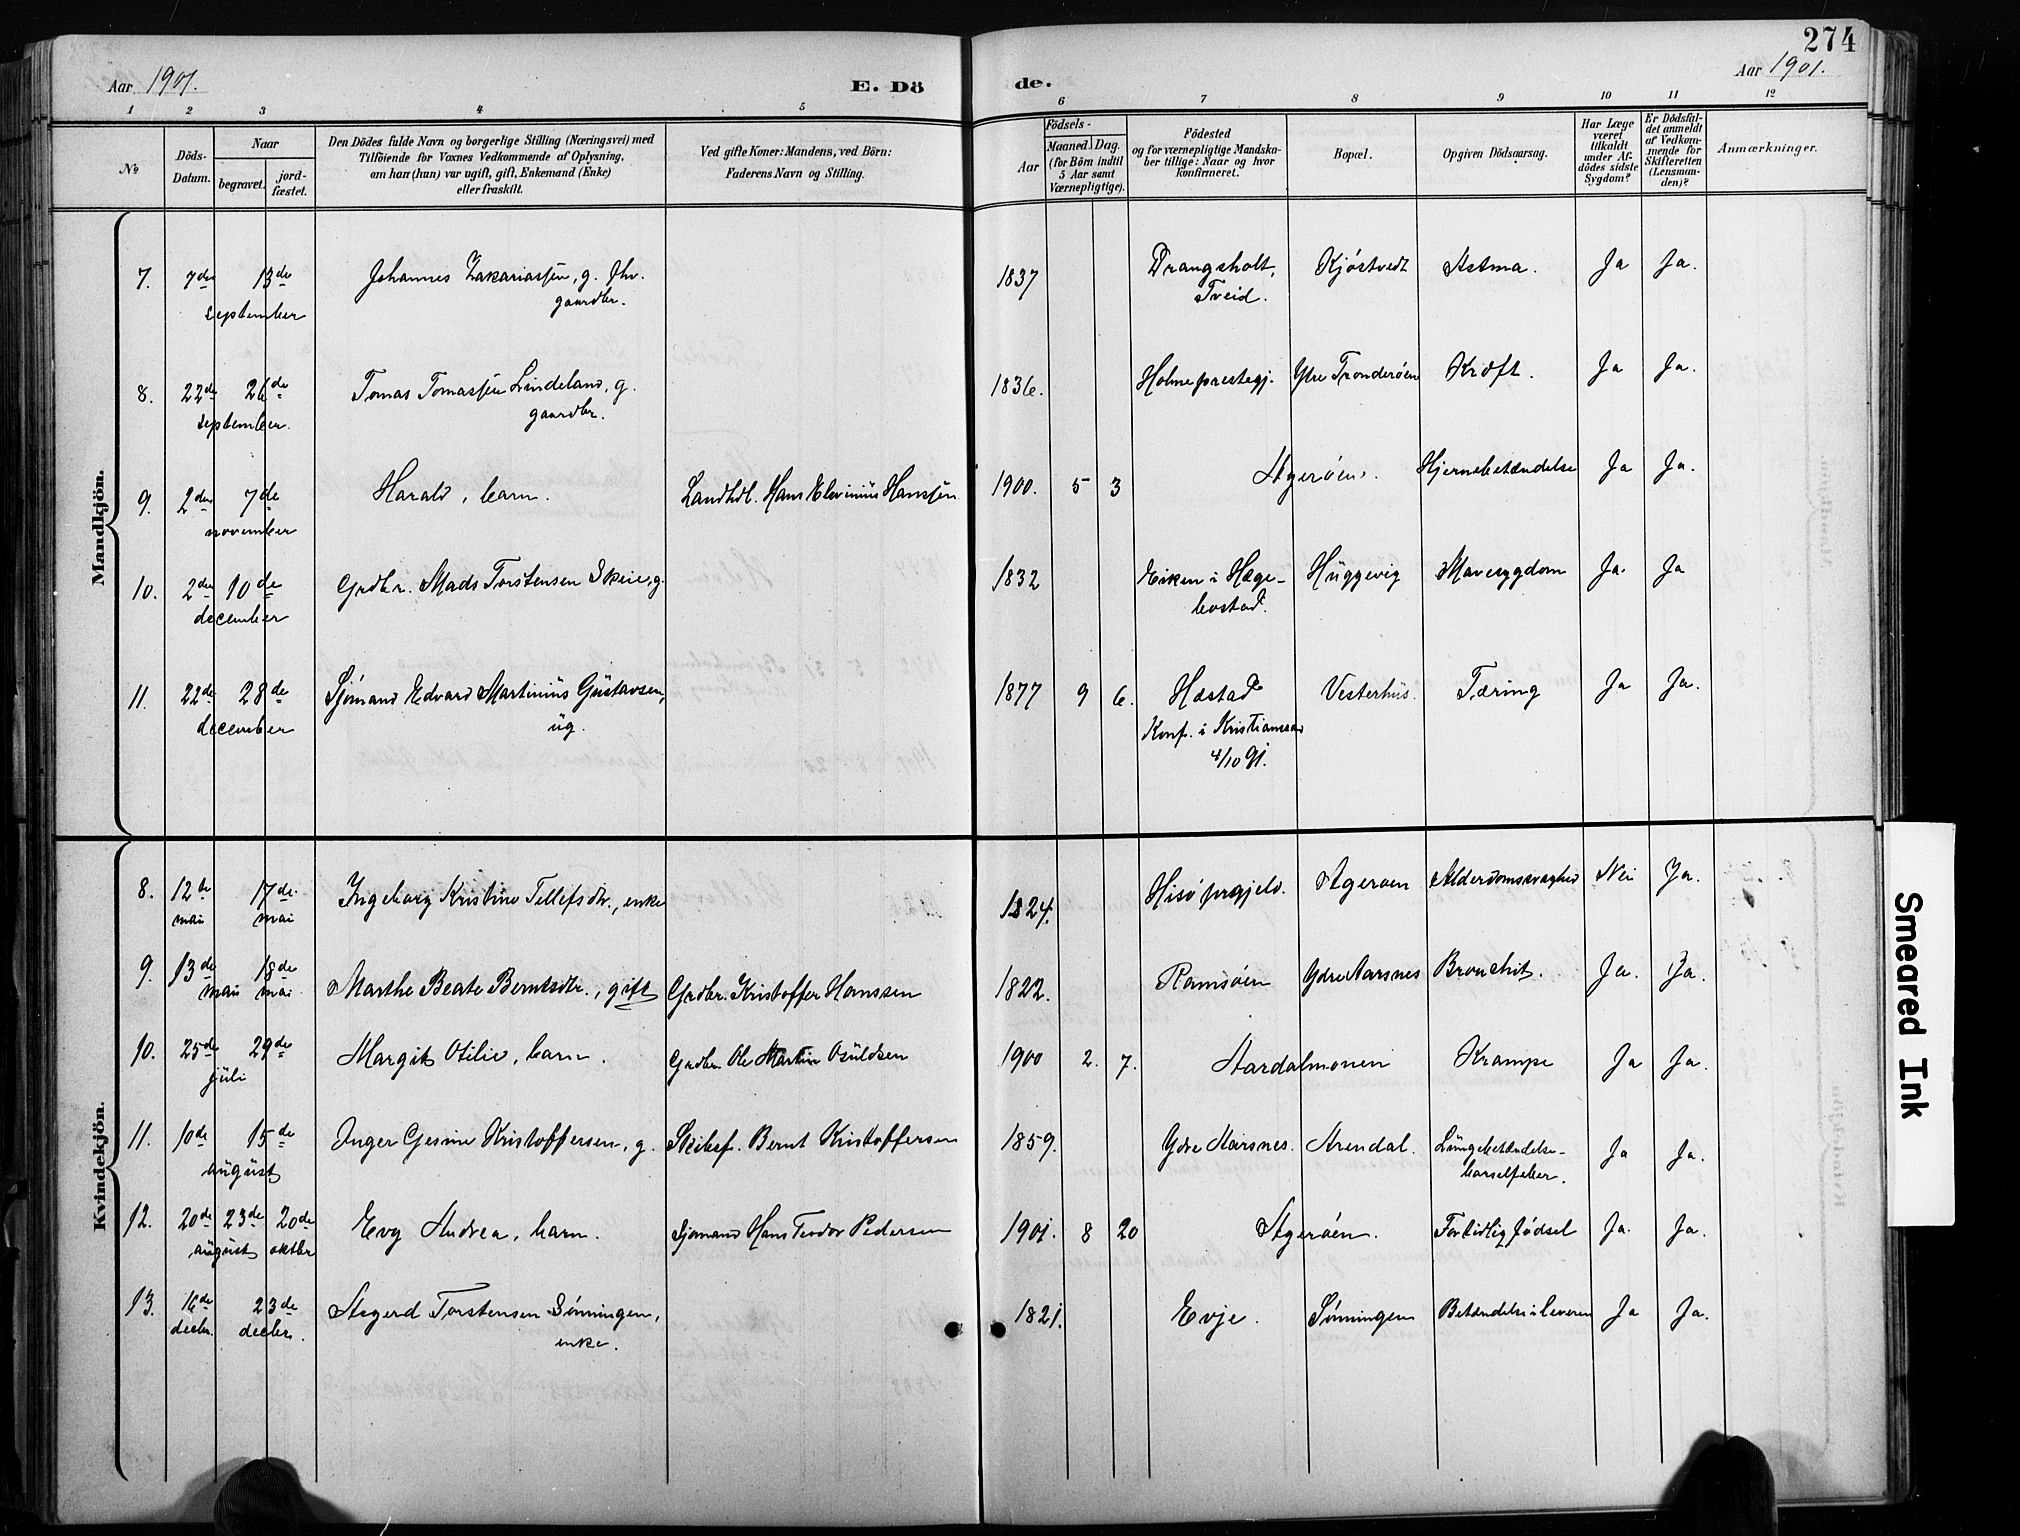 274
Aar 1901.
E. Döde.
Aar 1901.
1 2 3 4 5 6 7 8 9 10 11 12
No
Döds-Datum.
Naar
begravet.
jord-fæstet.
Den Dödes fulde Navn og borgerlige Stilling (Næringsvei) med
Tilföiende for Voxnes Vedkommende af Oplysning,
om han (hun) var ugift, gift, Enkemand (Enke)
eller fraskilt.
Ved gifte Koner: Mandens, ved Börn:
Faderens Navn og Stilling.
Födsels-
Aar
Maaned.
Dag.
(for Börn indtil
5 Aar samt
Værnepligtige).
Födested
og for værnepligtige Mandska-
ber tillige: Naar og hvor
konfirmeret.
Bopæl.
Opgiven Dödsaarsag.
Har Læge
været
tilkaldt
under Af-
dödes sidste
Sygdom?
Er Dödsfal-
det anmeldt
af Vedkom-
mende for
Skifteretten
(Lensman-
den)?
Anmærkninger.
Mandkjön.
7. 7de 13de september Johannes Zakariassen, g. fhv. gaardbr. 1837 Drangsholt, Tveid. Kjöstvedt Astma. Ja Ja.
8. 22de 26de september. Tomas Tomassen Lindeland, g. gaardbr. 1836. Holme prestegj. Ytre Tronderöen Kræft. Ja Ja.
9. 2den 7de november Harald, barn. Landhdl. Hans Hanssen 1900. 5 3 Ageröen. Hjernebetændelse Ja Ja.
10. 2den 10de december Grdbr. Mads Torstensen Skeie, g. 1832 Eiken i Hæge-bostad. Huggevig Mavesygdom Ja. Ja
11. 22de 28de december Sjömand Edvard Martinius Gustavsen, ug. 1877 9 6. Hæstad Konf. i Kristianssand 4/10 91. Vesterhus. Tæring Ja Ja.
Kvindekjön.
8. 12te mai 17de mai Ingeborg Kristine Tellefsdtr., enke 1824. Hisö prgjeld. Ageröen Alderdomssvaghed Nei Ja.
9. 13de mai 18de mai Marthe Beate Berntsdtr., gift Grdbr. Kristoffer Hanssen 1822. Ramsöen Ydre Aarsnes Bronchit. Ja. Ja.
10. 25de 29de juli Margit Otilie, barn. Grdbr. Ole Martin Osuldsen 1900 2. 7. Aardalmonen Krampe Ja Ja.
11. 10de 15de august Inger Gesine Kristoffersen, g. Skibsf. Bernt Kristoffersen 1859. Ydre Aarsnes. Arendal. Lungebetændelse-barselfeber. Ja Ja.
12. 20de 23de august 20de oktbr Evy Andrea, barn. Sjömand Hans Teodor Pedersen 1901. 8 20 Ageröen. Fortidlig födsel Ja. Ja.
13. 16de decbr. 23de decbr. Asgerd Torstensen Sönningen, enke. 1821. Evje. Sönningen Betændelse i leveren Ja Ja.
Smeared Ink